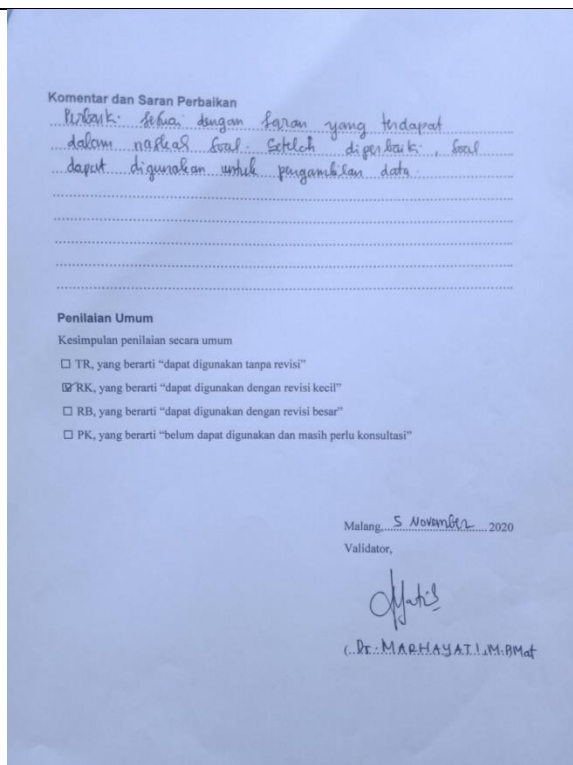 Komentar dan Saran Perbaikan
Perbaiki sesuai dengan saran yang terdapat
dalam naskah soal. Setelah diperbaiki, soal
dapat digunakan untuk pengambilan data.
Penilaian Umum
Kesimpulan penilaian secara umum
☐ TR, yang berarti “dapat digunakan tanpa revisi”
☑ RK, yang berarti “dapat digunakan dengan revisi kecil”
☐ RB, yang berarti “dapat digunakan dengan revisi besar”
☐ PK, yang berarti “belum dapat digunakan dan masih perlu konsultasi”
Malang, 5 November 2020
Validator,
(..Dr. MARHAYATI, M.PMat